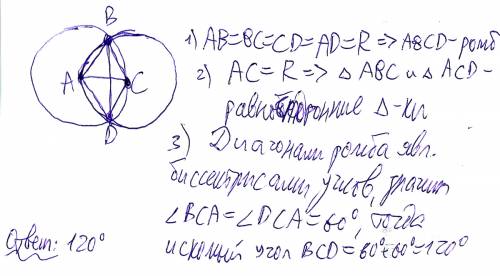 B
A
C
D
1) AB=BC=CD=AD=R => ABCD-ромб
2) AC=R => △ABC и △ACD-
равносторонние △-ки
3) Диагонали ромба явл.
биссектрисами углов, значит
∠BCA=∠DCA=60°, тогда
искомый угол BCD=60°+60°=120°
Ответ: 120°